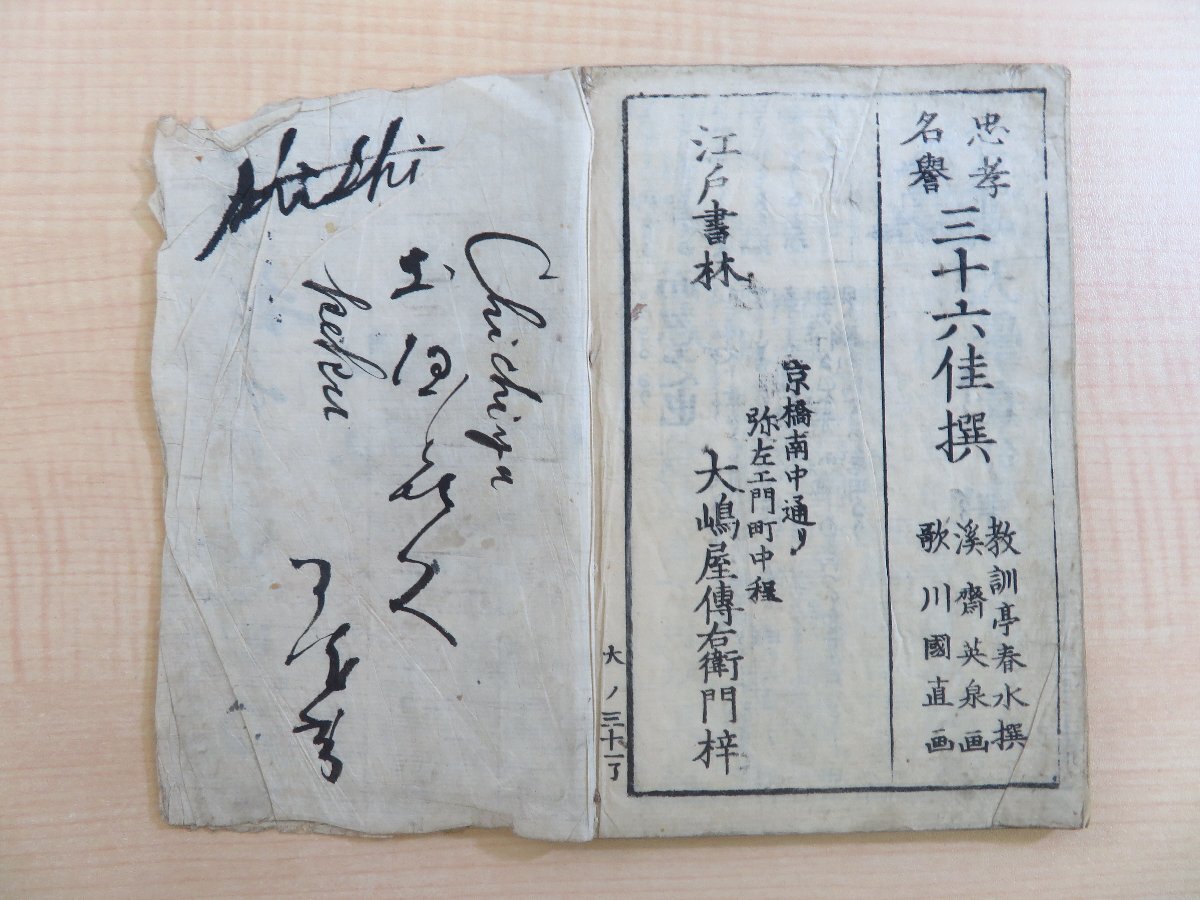 忠孝
名譽
三十六佳撰
教訓亭春水撰
溪齋英泉画
歌川國直画
江戸書林
京橋南中通り
弥左エ門町中程
大嶋屋傳右衛門梓
大ノ三十一丁
Chichiya